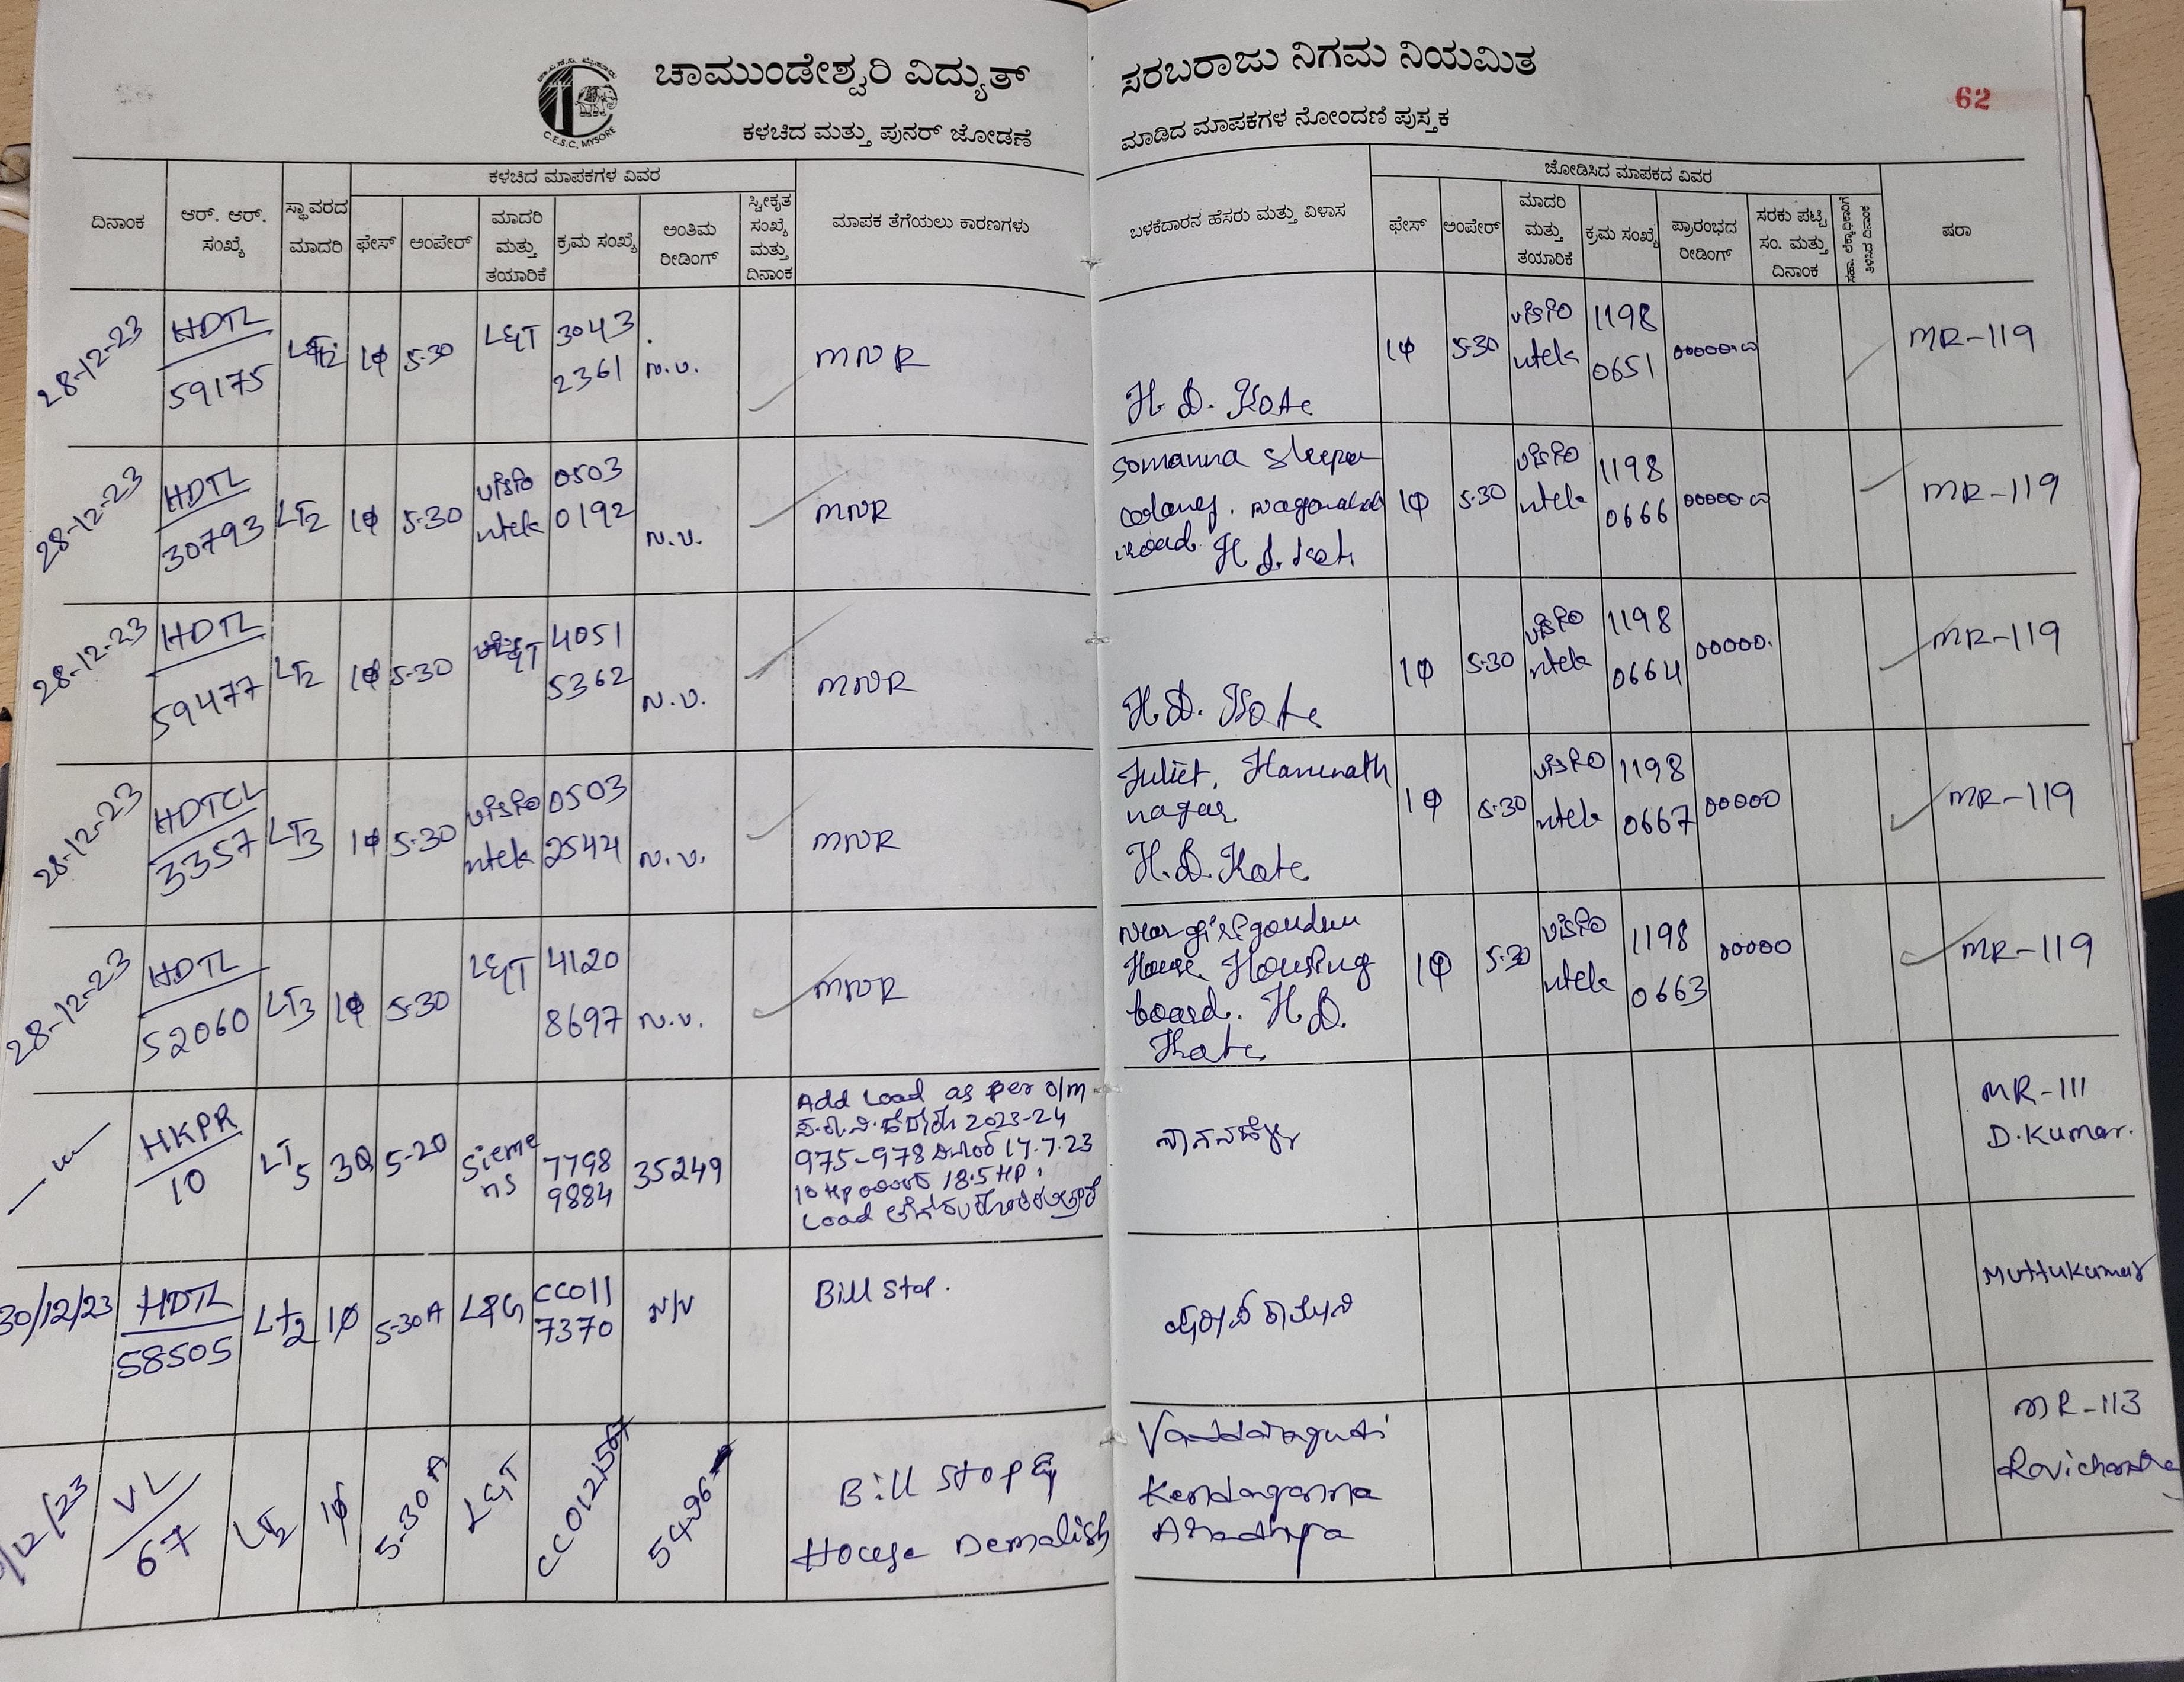 ಚಾಮುಂಡೇಶ್ವರಿ ವಿದ್ಯುತ್ ಸರಬರಾಜು ನಿಗಮ ನಿಯಮಿತ
C.E.S.C, MYSORE
62
ಕಳಚಿದ ಮತ್ತು ಪುನರ್ ಜೋಡಣೆ ಮಾಡಿದ ಮಾಪಕಗಳ ನೋಂದಣಿ ಪುಸ್ತಕ
ದಿನಾಂಕ
ಆರ್. ಆರ್.
ಸಂಖ್ಯೆ
ಸ್ಥಾವರದ
ಮಾದರಿ
ಕಳಚಿದ ಮಾಪಕಗಳ ವಿವರ
ಫೇಸ್
ಅಂಪೇರ್
ಮಾದರಿ
ಮತ್ತು
ತಯಾರಿಕೆ
ಕ್ರಮ ಸಂಖ್ಯೆ
ಅಂತಿಮ
ರೀಡಿಂಗ್
ಸ್ವೀಕೃತ
ಸಂಖ್ಯೆ
ಮತ್ತು
ದಿನಾಂಕ
ಮಾಪಕ ತೆಗೆಯಲು ಕಾರಣಗಳು
ಬಳಕೆದಾರನ ಹೆಸರು ಮತ್ತು ವಿಳಾಸ
ಜೋಡಿಸಿದ ಮಾಪಕದ ವಿವರ
ಫೇಸ್
ಅಂಪೇರ್
ಮಾದರಿ
ಮತ್ತು
ತಯಾರಿಕೆ
ಕ್ರಮ ಸಂಖ್ಯೆ
ಪ್ರಾರಂಭದ
ರೀಡಿಂಗ್
ಸರಕು ಪಟ್ಟಿ
ಸಂ. ಮತ್ತು
ದಿನಾಂಕ
ಸಹಾ. ಲೆಕ್ಕಾಧಿಕಾರಿಗೆ
ತಿಳಿಸಿದ ದಿನಾಂಕ
ಷರಾ
28-12-23
HDTL
59175
1φ
5-30
L&T
3043
2361
N.V.
MNR
H. D. Kote
1φ
5-30
Visio
ntek
1198
0651
MR-119
28-12-23
HDTL
30793
LT2
1φ
5-30
Visio
ntek
0503
0192
N.V.
MNR
Somanna
road. H.D.Kote
1φ
5-30
Visio
ntek
1198
0666
MR-119
28-12-23
HDTL
59477
LT2
1φ
5-30
4051
5362
N.V.
MNR
H.D. Kote
1φ
5-30
Visio
ntek
1198
0664
00000.
MR-119
28-12-23
HDTCL
3357
LT3
1φ
5-30
Visio
ntek
0503
2544
N.V.
MNR
Juliet,
nagar
H.D.Kote
1φ
5-30
Visio
ntek
1198
0667
00000
MR-119
28-12-23
HDTL
52060
LT3
1φ
5-30
L&T
4120
8697
N.V.
MNR
Near
House, Housing
board. H.D.
Kote
1φ
5-30
Visio
ntek
1198
0663
00000
MR-119
HKPR
10
LT5
3φ
5-20
Sieme
ns
7798
9884
35249
Add Load as per O/M
2023-24
975-978 17.7.23
10 HP 18.5 HP
Load
MR-111
D.Kumar.
30/12/23
HDTL
58505
LT2
1φ
5-30A
L&G
CC011
7370
N/V
Bill Stop.
Muttukumar
/12/23
VL
67
LT2
1φ
5-30 A
L&T
Bill Stop &
House Demalish
Kendaganna
MR-113